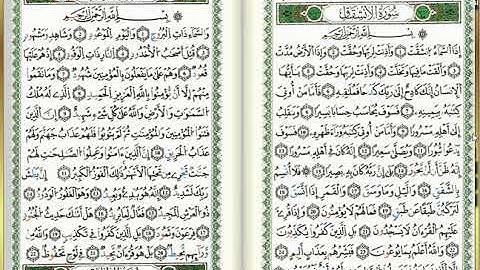 سُورَةُ الِانشِقَاقِ
بِسْمِ اللَّهِ الرَّحْمَٰنِ الرَّحِيمِ
إِذَا السَّمَاءُ انشَقَّتْ ١ وَأَذِنَتْ لِرَبِّهَا وَحُقَّتْ ٢ وَإِذَا الْأَرْضُ مُدَّتْ
٣ وَأَلْقَتْ مَا فِيهَا وَتَخَلَّتْ ٤ وَأَذِنَتْ لِرَبِّهَا وَحُقَّتْ ٥ يَٰأَيُّهَا
الْإِنسَٰنُ إِنَّكَ كَادِحٌ إِلَىٰ رَبِّكَ كَدْحًا فَمُلَٰقِيهِ ٦ فَأَمَّا مَنْ أُوتِيَ
كِتَٰبَهُ بِيَمِينِهِ ٧ فَسَوْفَ يُحَاسَبُ حِسَابًا يَسِيرًا ٨ وَيَنقَلِبُ
إِلَىٰ أَهْلِهِ مَسْرُورًا ٩ وَأَمَّا مَنْ أُوتِيَ كِتَٰبَهُ وَرَاءَ ظَهْرِهِ ١٠ فَسَوْفَ
يَدْعُوا ثُبُورًا ١١ وَيَصْلَىٰ سَعِيرًا ١٢ إِنَّهُ كَانَ فِي أَهْلِهِ مَسْرُورًا ١٣
إِنَّهُ ظَنَّ أَن لَّن يَحُورَ ١٤ بَلَىٰ إِنَّ رَبَّهُ كَانَ بِهِ بَصِيرًا ١٥ فَلَا أُقْسِمُ
بِالشَّفَقِ ١٦ وَالَّيْلِ وَمَا وَسَقَ ١٧ وَالْقَمَرِ إِذَا اتَّسَقَ ١٨
لَتَرْكَبُنَّ طَبَقًا عَن طَبَقٍ ١٩ فَمَا لَهُمْ لَا يُؤْمِنُونَ ٢٠ وَإِذَا قُرِئَ
عَلَيْهِمُ الْقُرْءَانُ لَا يَسْجُدُونَ ٢١ بَلِ الَّذِينَ كَفَرُوا يُكَذِّبُونَ ٢٢
وَاللَّهُ أَعْلَمُ بِمَا يُوعُونَ ٢٣ فَبَشِّرْهُم بِعَذَابٍ أَلِيمٍ ٢٤
بِسْمِ اللَّهِ الرَّحْمَٰنِ الرَّحِيمِ
وَالسَّمَاءِ ذَاتِ الْبُرُوجِ ١ وَالْيَوْمِ الْمَوْعُودِ ٢ وَشَاهِدٍ وَمَشْهُودٍ
٣ قُتِلَ أَصْحَٰبُ الْأُخْدُودِ ٤ النَّارِ ذَاتِ الْوَقُودِ ٥ إِذْ هُمْ عَلَيْهَا
قُعُودٌ ٦ وَهُمْ عَلَىٰ مَا يَفْعَلُونَ بِالْمُؤْمِنِينَ شُهُودٌ ٧ وَمَا نَقَمُوا
مِنْهُمْ إِلَّا أَن يُؤْمِنُوا بِاللَّهِ الْعَزِيزِ الْحَمِيدِ ٨ الَّذِي لَهُ مُلْكُ
السَّمَٰوَٰتِ وَالْأَرْضِ وَاللَّهُ عَلَىٰ كُلِّ شَيْءٍ شَهِيدٌ ٩ إِنَّ الَّذِينَ
فَتَنُوا الْمُؤْمِنِينَ وَالْمُؤْمِنَٰتِ ثُمَّ لَمْ يَتُوبُوا فَلَهُمْ عَذَابُ جَهَنَّمَ وَلَهُمْ
عَذَابُ الْحَرِيقِ ١٠ إِنَّ الَّذِينَ ءَامَنُوا وَعَمِلُوا الصَّٰلِحَٰتِ لَهُمْ
جَنَّٰتٌ تَجْرِي مِن تَحْتِهَا الْأَنْهَٰرُ ذَٰلِكَ الْفَوْزُ الْكَبِيرُ ١١ إِنَّ بَطْشَ
رَبِّكَ لَشَدِيدٌ ١٢ إِنَّهُ هُوَ يُبْدِئُ وَيُعِيدُ ١٣ وَهُوَ الْغَفُورُ الْوَدُودُ ١٤
ذُو الْعَرْشِ الْمَجِيدُ ١٥ فَعَّالٌ لِّمَا يُرِيدُ ١٦ هَلْ أَتَىٰكَ حَدِيثُ الْجُنُودِ
١٧ فِرْعَوْنَ وَثَمُودَ ١٨ بَلِ الَّذِينَ كَفَرُوا فِي تَكْذِيبٍ ١٩ وَاللَّهُ مِن
وَرَائِهِم مُّحِيطٌ ٢٠ بَلْ هُوَ قُرْءَانٌ مَّجِيدٌ ٢١ فِي لَوْحٍ مَّحْفُوظٍ ٢٢